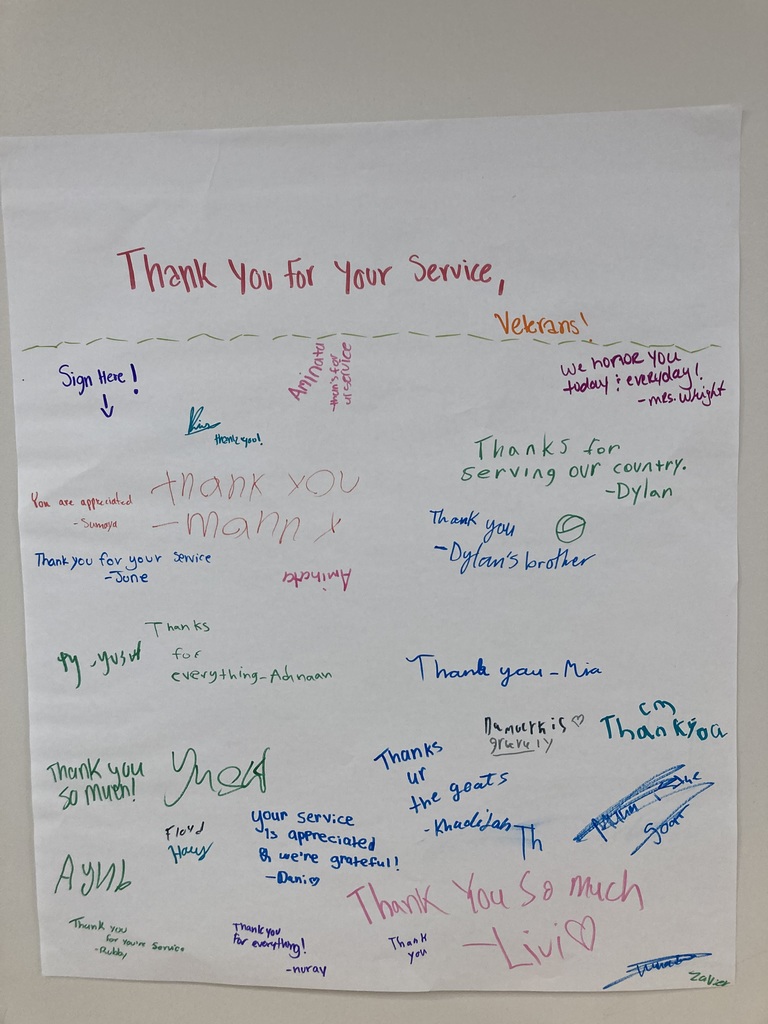 Thank You For Your Service,
Veterans!
Sign Here!
Aminata
ur service
We honor You
today & everyday!
-mrs. Wright
thank you!
Thanks for
serving our country.
-Dylan
You are appreciated
- Sumaya
thank you
Thank you
-Dylan's brother
Thank you for your service
-June
Aminata
ty, yusuf
Thanks
for
everything-Adnaan
Thank you-Mia
cm
Thank you
Thank you
so much!
Yusuf
Thanks
ur
the goats
-Khadijah
Th
goat
Floyd
Your service
is appreciated
& we're grateful!
-Dani
Ayub
Thank You So much
-Livi
Thank you
for you're service
-Rubby
Thank you
for everything!
-nuray
Thank
you
Zavier